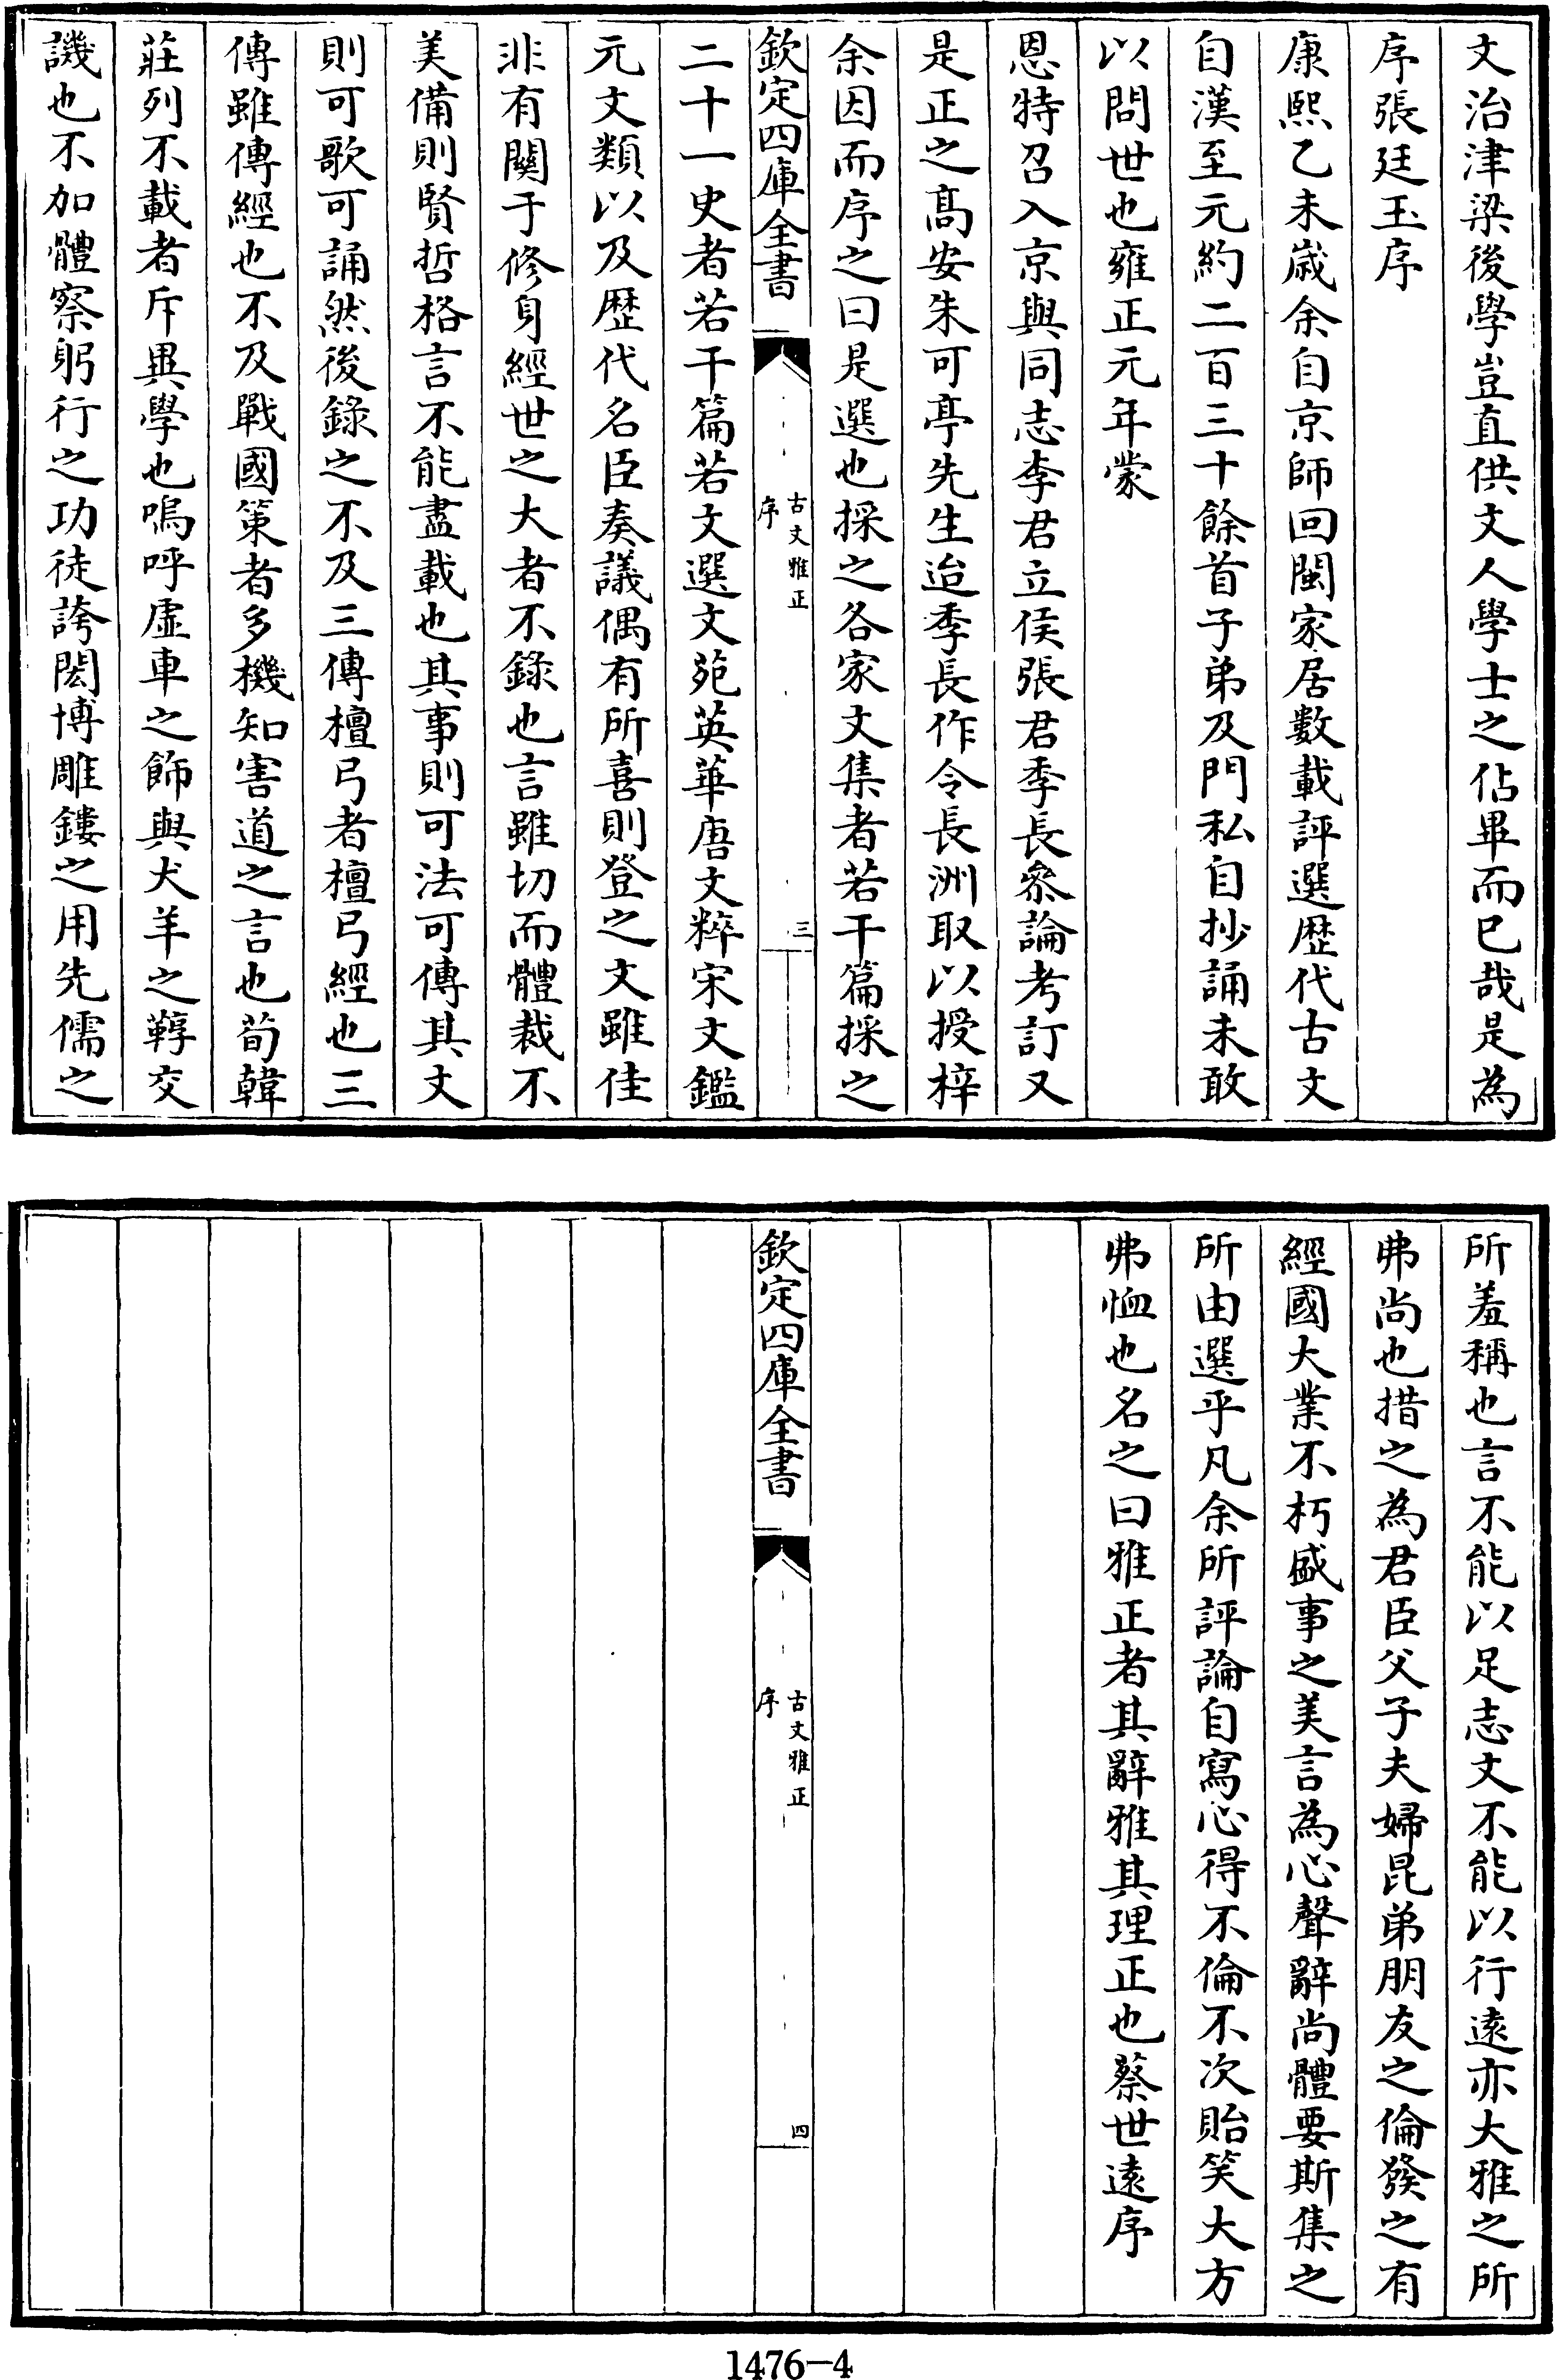 文治津梁後學豈直供文人學士之佔畢而已哉是為
序張廷玉序
康熙乙未歲余自京師回閩家居數載評選歴代古文
自漢至元約二百三十餘首子弟及門私自抄誦未敢
以問世也雍正元年蒙
恩特召入京與同志李君立侯張君季長叅論考訂又
是正之髙安朱可亭先生迨季長作令長洲取以授梓
余因而序之曰是選也採之各家文集者若干篇採之
欽定四庫全書
古文雅正
序
三
二十一史者若干篇若文選文苑英華唐文粹宋文鑑
元文類以及歴代名臣奏議偶有所喜則登之文雖佳
非有關于修身經世之大者不錄也言雖切而體裁不
美備則賢哲格言不能盡載也其事則可法可傳其文
則可歌可誦然後錄之不及三傳檀弓者檀弓經也三
傳雖傳經也不及戰國策者多機知害道之言也荀韓
莊列不載者斥異學也嗚呼虛車之飾與犬羊之鞟交
譏也不加體察躬行之功徒誇閎博雕鏤之用先儒之
所羞稱也言不能以足志文不能以行遠亦大雅之所
弗尚也措之為君臣父子夫婦昆弟朋友之倫發之有
經國大業不朽盛事之美言為心聲辭尚體要斯集之
所由選乎凡余所評論自寫心得不倫不次貽笑大方
弗恤也名之曰雅正者其辭雅其理正也蔡世遠序
欽定四庫全書
古文雅正
序
四
1476-4